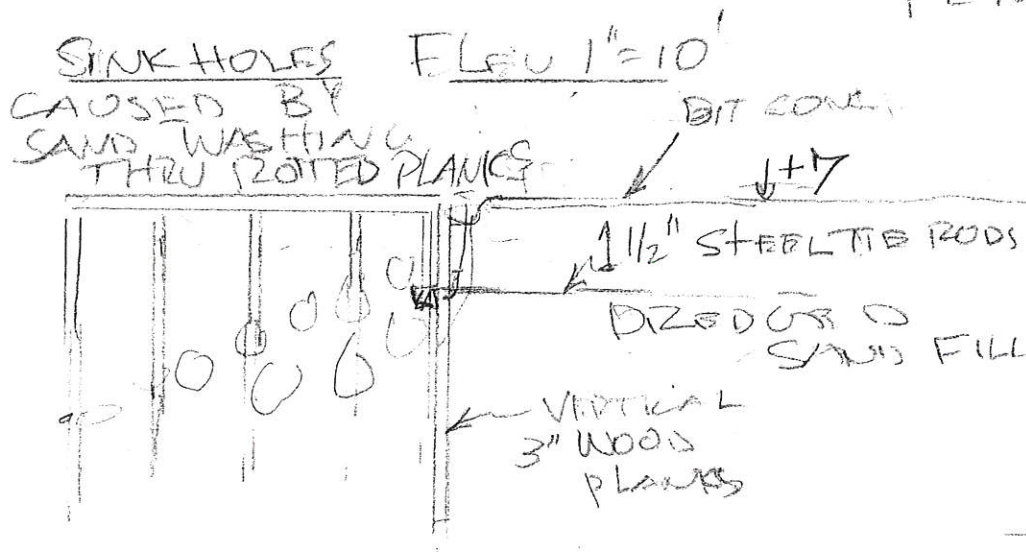 SINK HOLES
CAUSED BY
SAND WASHING
THRU ROTTED PLANKS
ELEV 1"=10'
BIT CONC.
+7
1 1/2" STEEL TIE RODS
DREDGED
SAND FILL
VERTICAL
3" WOOD
PLANKS